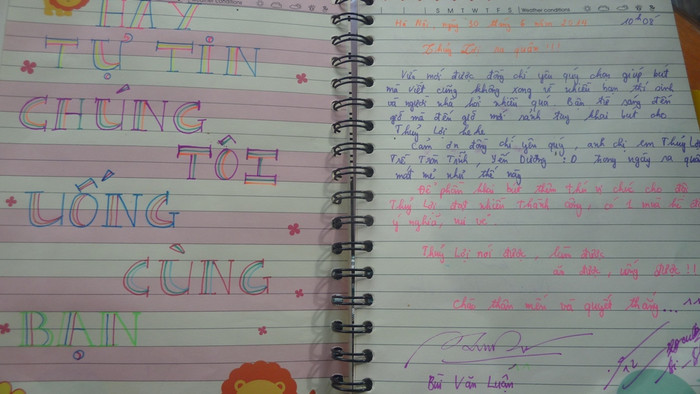 HÃY
TỰ TIN
CHÚNG
TÔI
UỐNG
CÙNG
BẠN
S M T W T F S Weather conditions
Hà Nội, ngày 30 tháng 6 năm 2014 10h02
Thủy Lợi ra quân !!!
Vừa mới được đồng chí yêu quý chọn giúp bút
mà viết cũng không xong vì nhiều bạn thí sinh
và người nhà hỏi nhiều quá. Bàn từ sáng đến
giờ mà đến giờ mới rảnh tay khai bút cho
Thuỷ Lợi he he
Cảm ơn đồng chí yêu quý, anh chị em Thuỷ Lợi
Trẻ Trên Tỉnh, Yên Dương :D trong ngày ra quân
mát mẻ như thế này
Để phần khai bút thêm thú vị chúc cho đội
Thuỷ Lợi đạt nhiều thành công, có 1 mùa hè đầy
ý nghĩa, vui vẻ
Thuỷ Lợi nói được, làm được
ăn được, uống được !!
Chào thân mến và quyết thắng...
Bùi Văn Luận